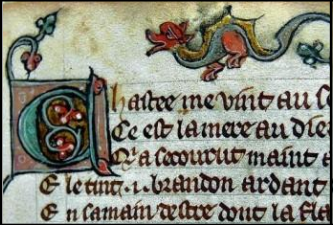 Chastee me vint au s
Ce est la mere au die
Q'a secourut maint
E le ting .i. brandon ardant
En sa main destre dont la fla